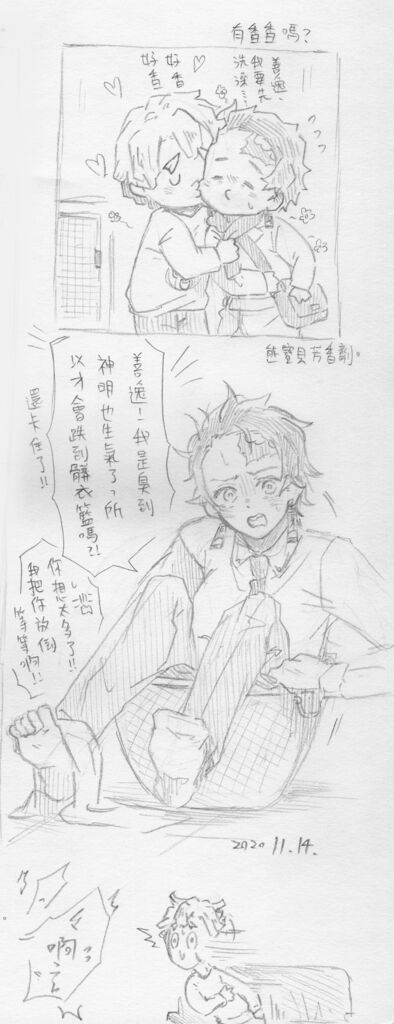 有香香嗎？
善逸、
我要先
洗澡…
好香
好香
熊寶貝芳香劑。
善逸！我是臭到
神明也生氣了，所
以才會跌到髒衣籃嗎?!
還卡住了!!
你想太多了!!
我把你放倒
等等啊!!
2020 11.14.
啊